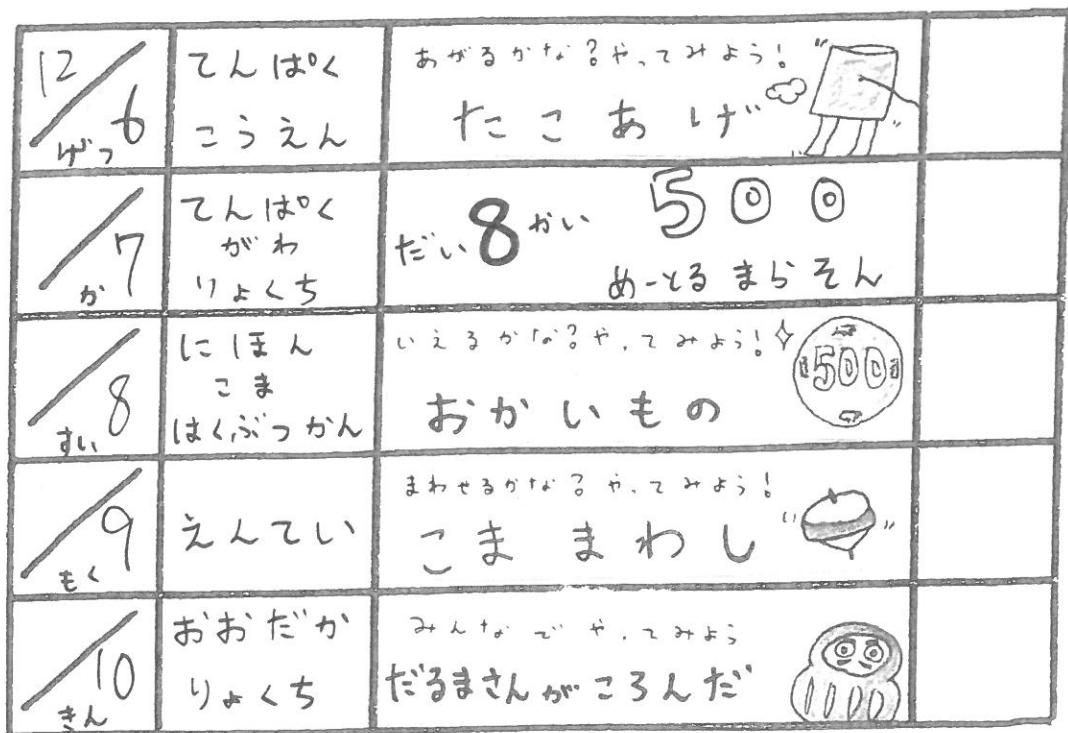 12/6
げつ
てんぱく
こうえん
あがるかな?やってみよう!
たこあげ
/7
か
てんぱく
がわ
りょくち
だい8かい 500
めーとるまらそん
/8
すい
にほん
こま
はくぶつかん
いえるかな?やってみよう!
おかいもの
500
/9
もく
えんてい
まわせるかな?やってみよう!
こままわし
/10
きん
おおだか
りょくち
みんなでやってみよう
だるまさんがころんだ